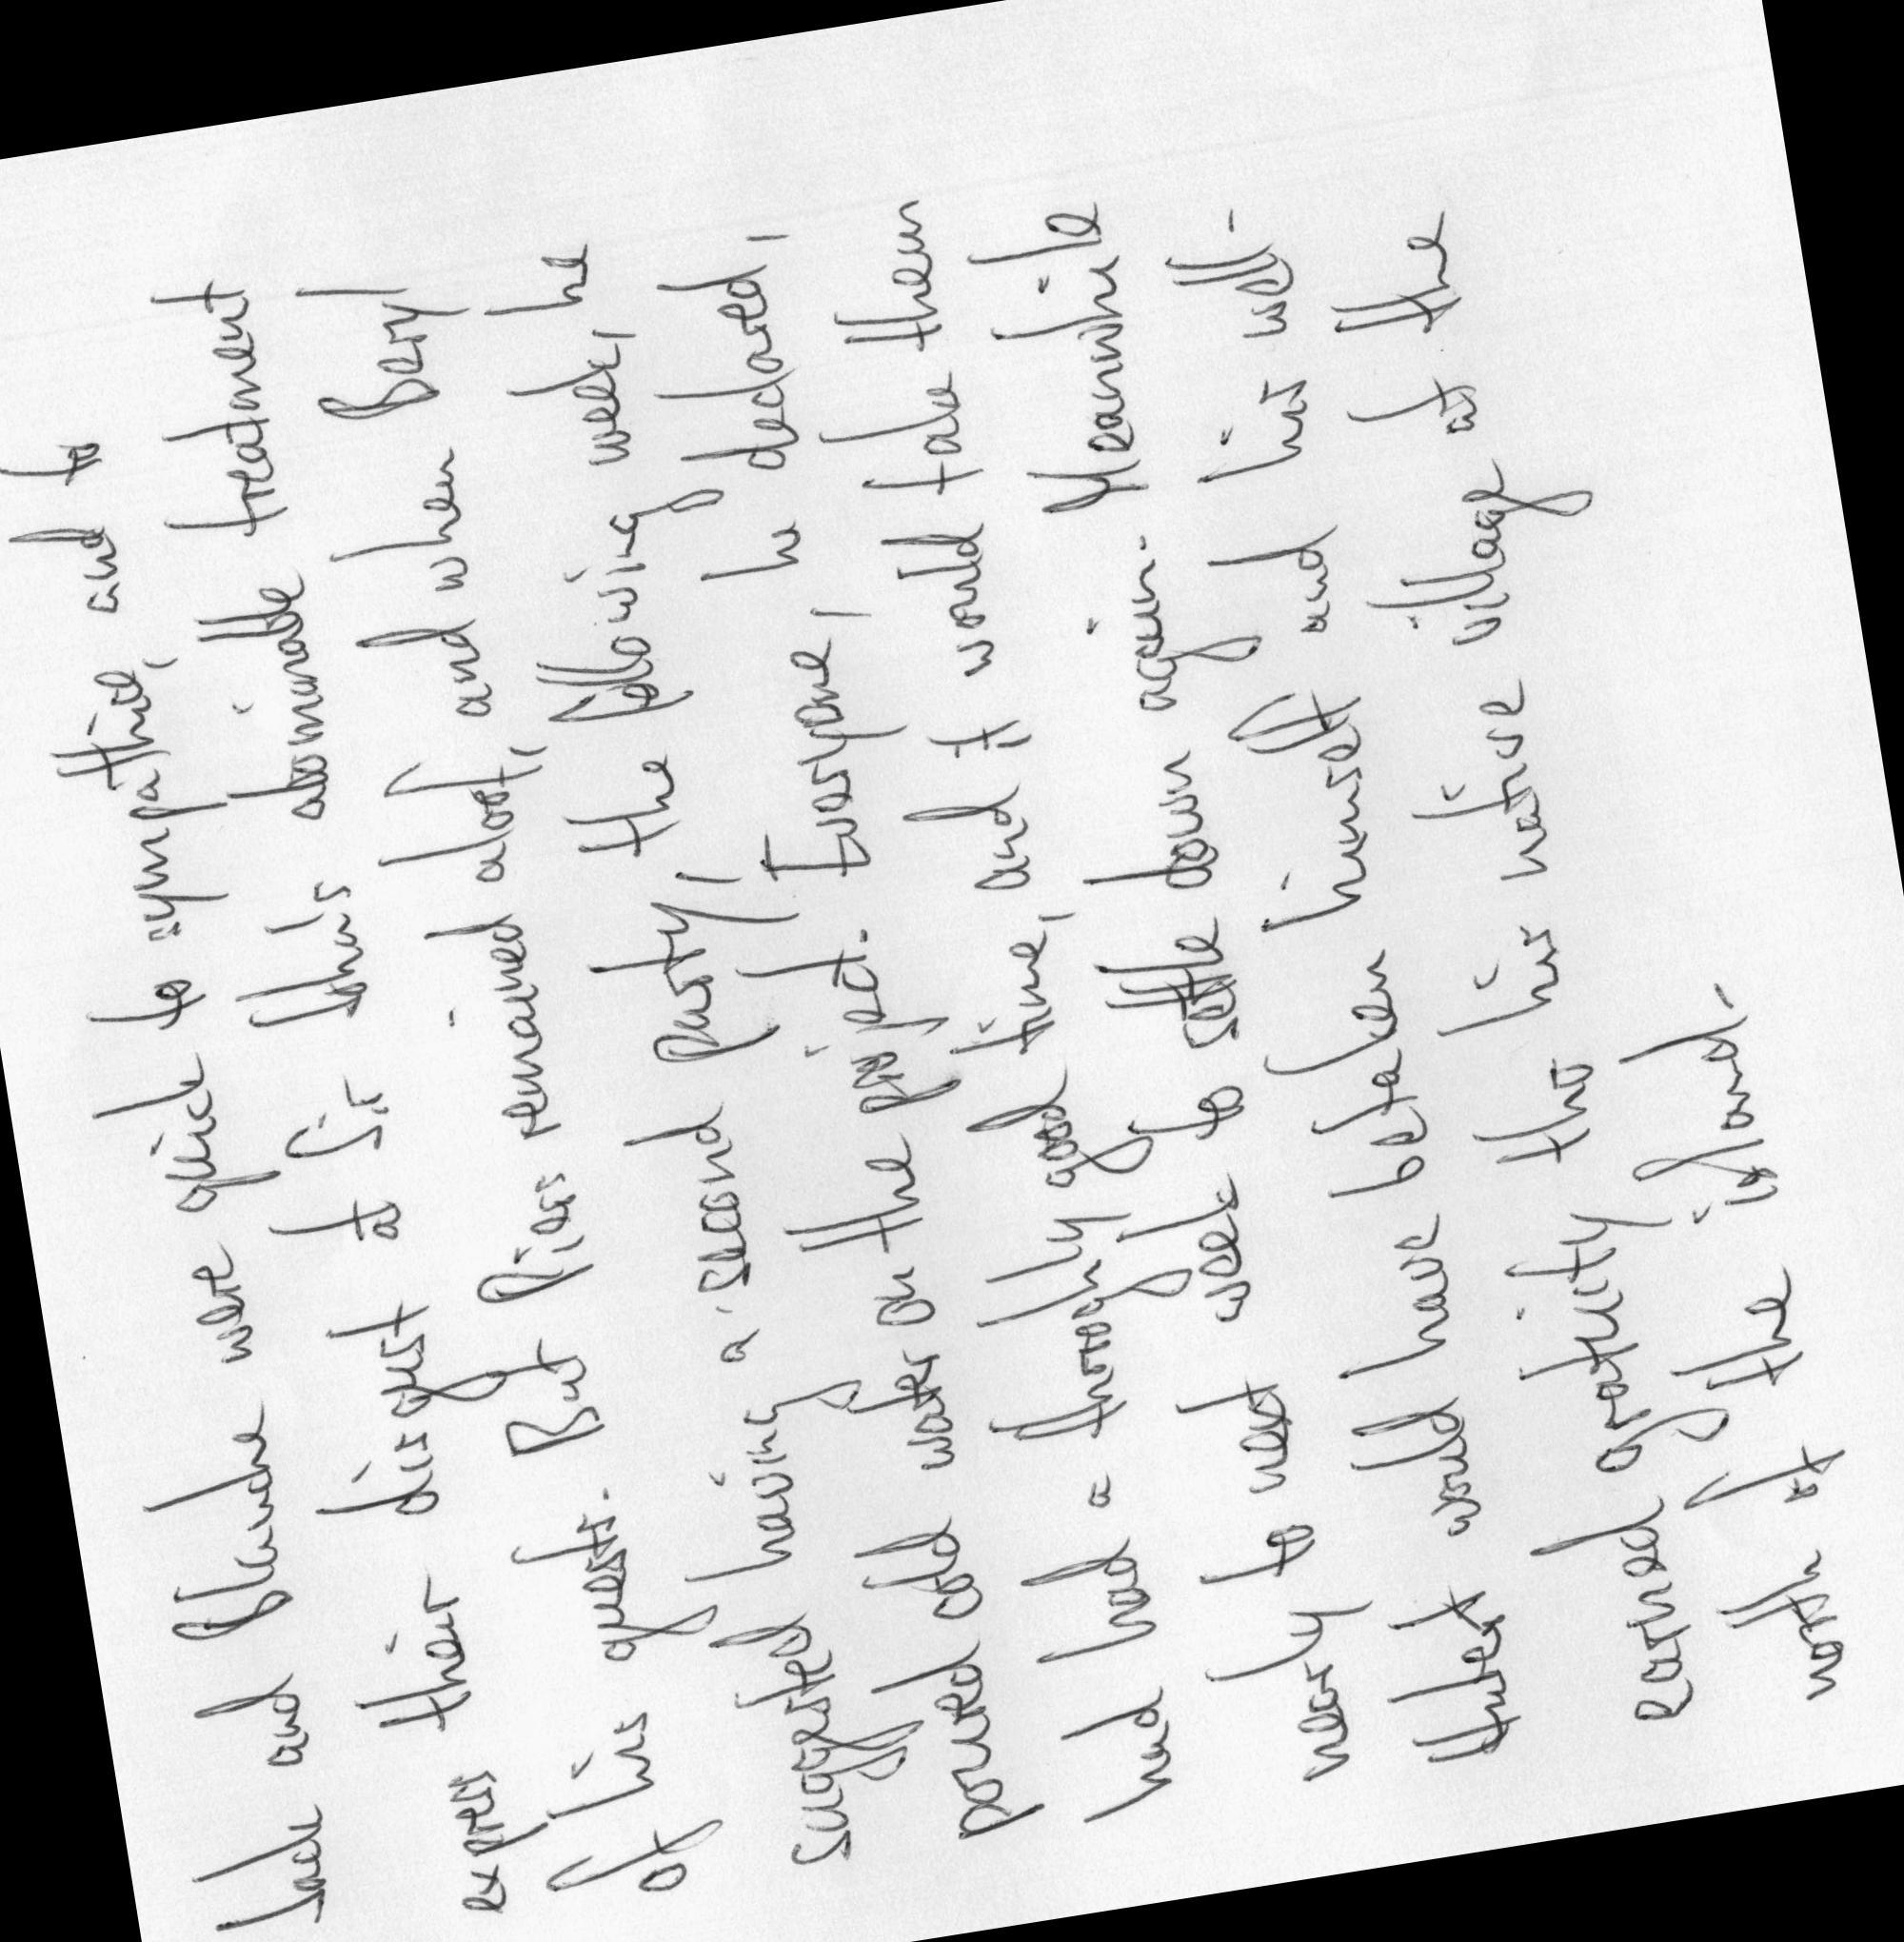 Jack and Blanche were quick to "sympathise, and to
express their disgust at Sir Ihhu's abominable treatment
of his guest. But Piers remained aloof, and when Beryl
suggested having a second party, the following week, he
poured cold water on the project. Everyone, he declared,
had had a thoroughly good time, and it would take them
nearly to next week to settle down again. Meanwhile
Hubert would have betaken himself and his well-
earned gratuity tho his native village at the
north of the island.